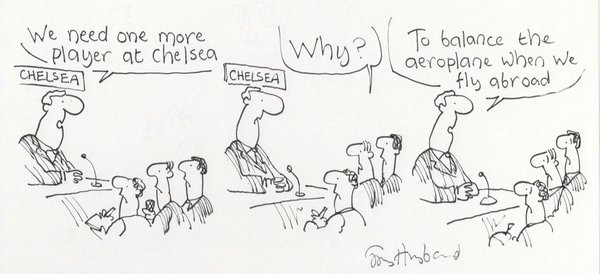 We need one more
player at Chelsea
CHELSEA
Why?
CHELSEA
To balance the
aeroplane when we
fly abroad
Tony Husband